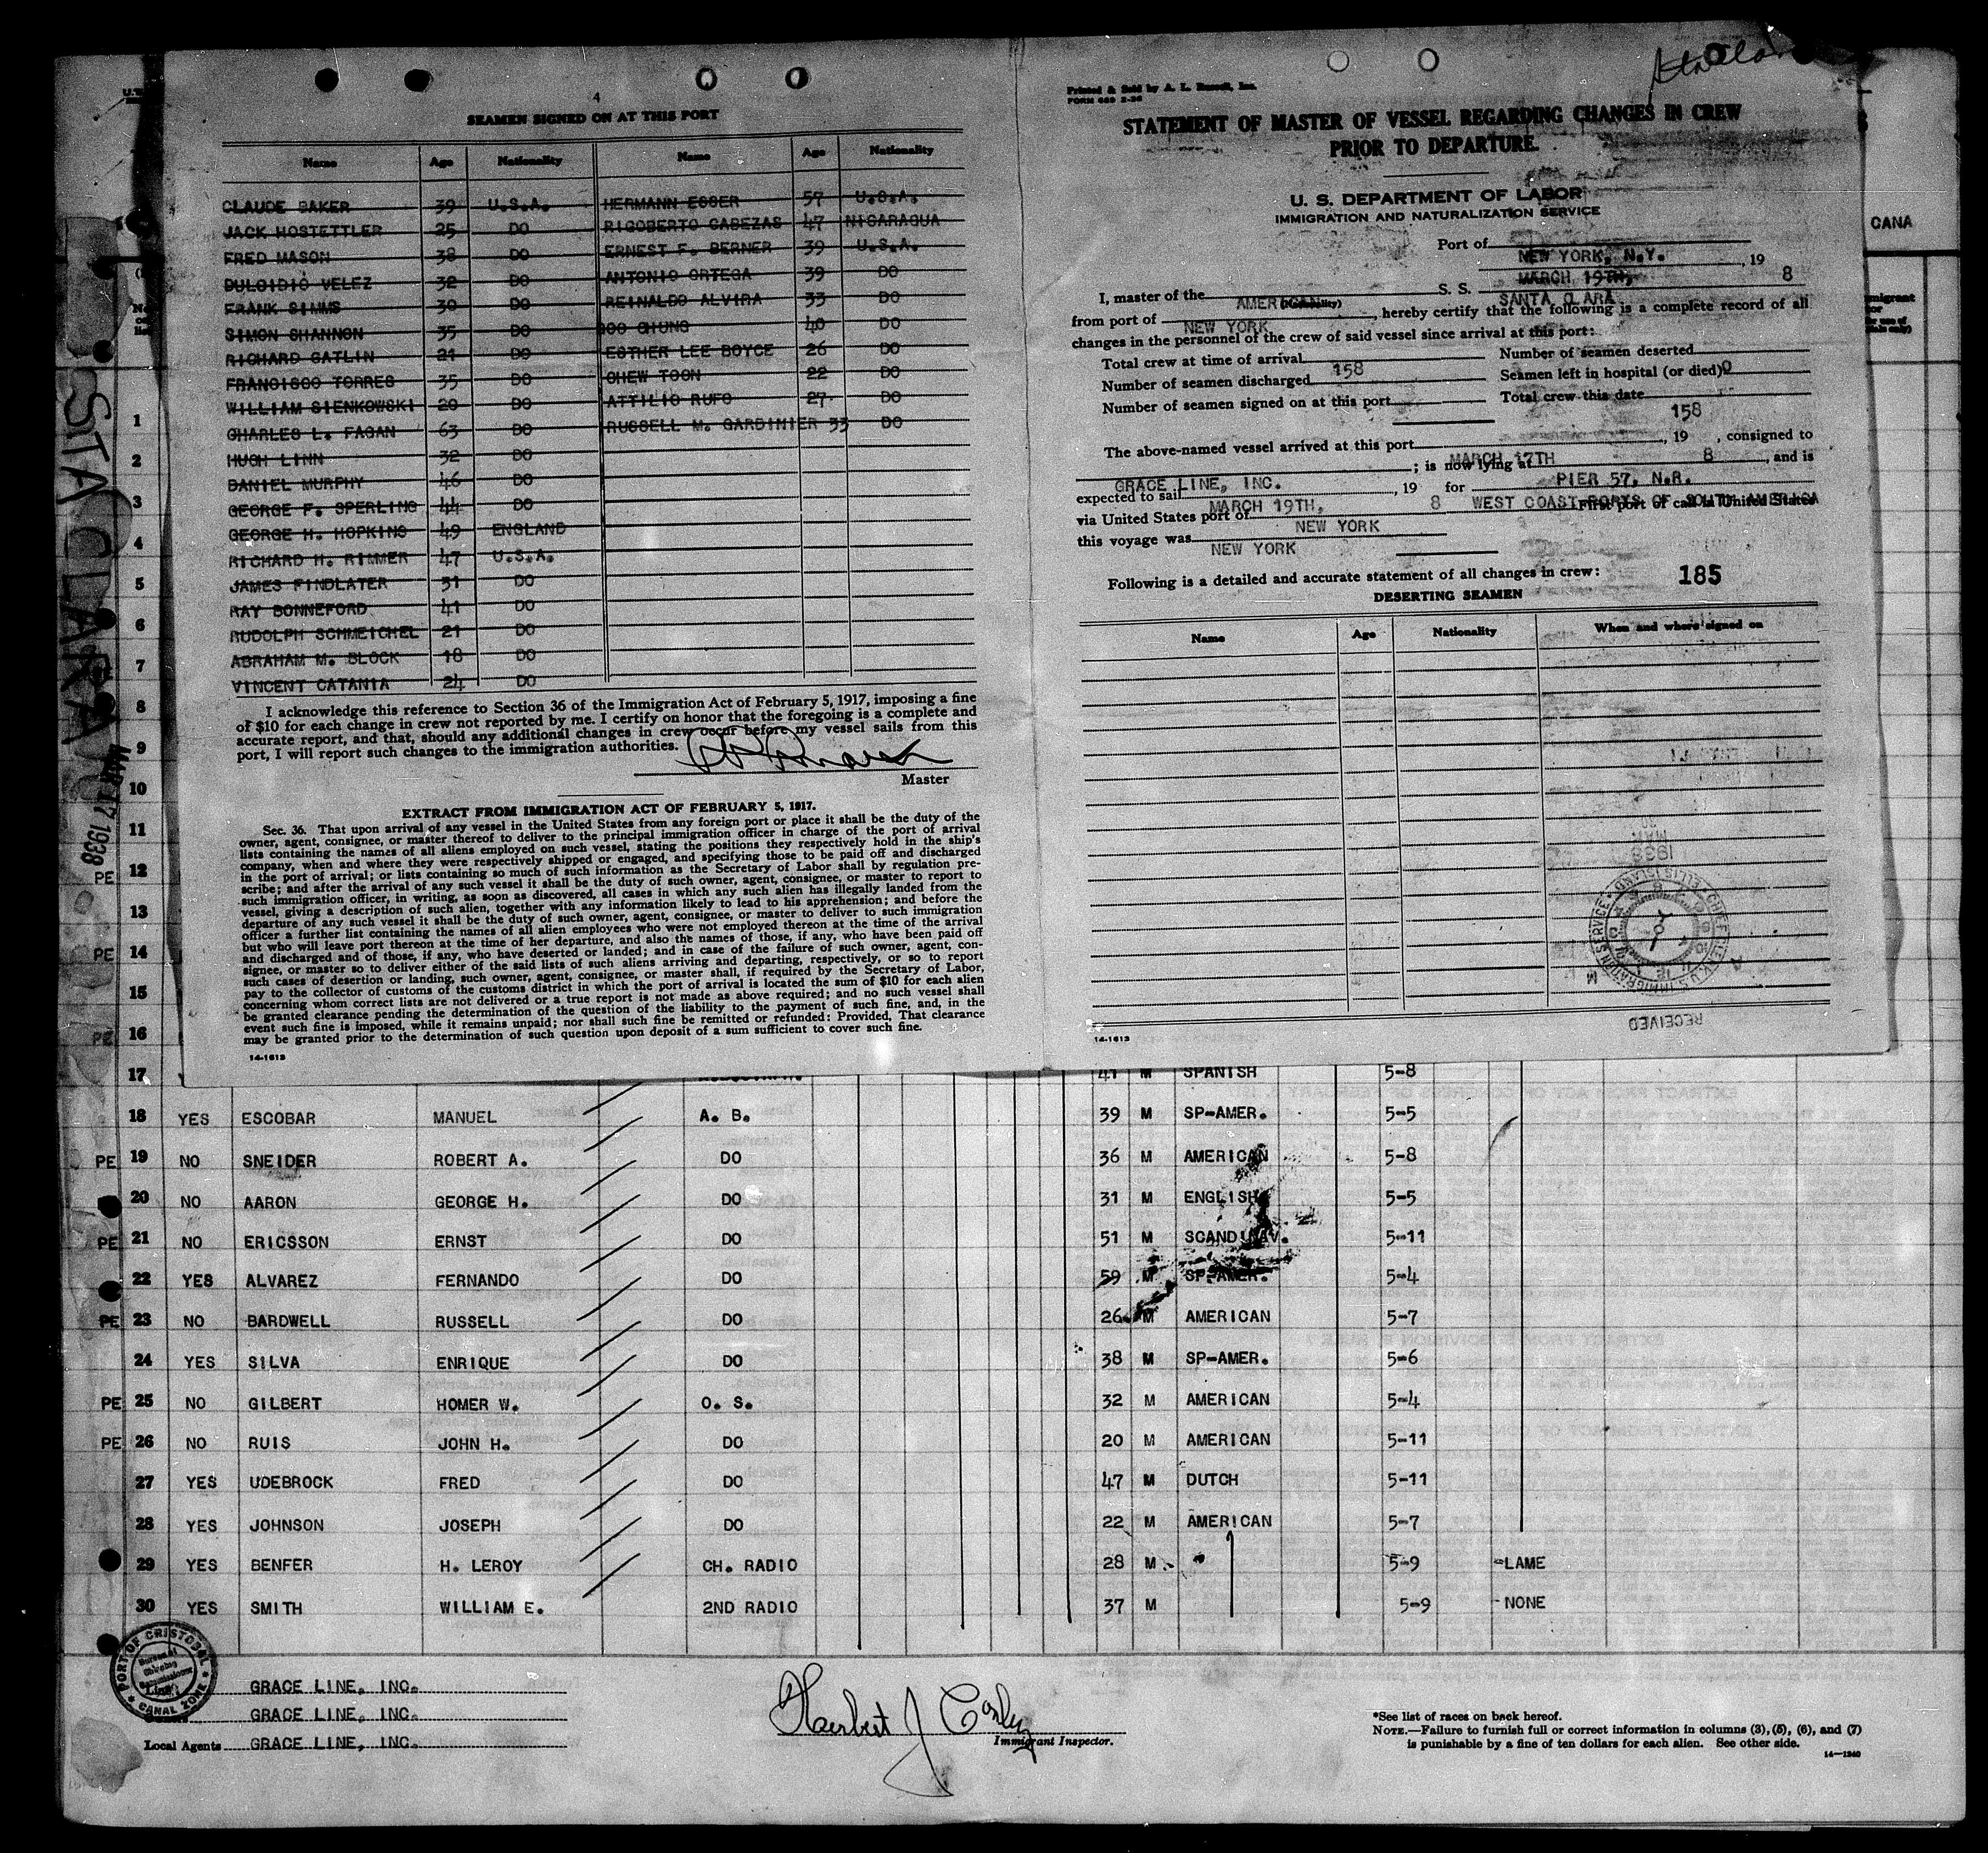 4
SEAMEN SIGNED ON AT THIS PORT
Name Age Nationality Name Age Nationality
CLAUDE BAKER 39 U.S.A. HERMANN ESSER 57 U.S.A.
JACK HOSTETTLER 25 DO RIGOBERTO CABEZAS 47 NICARAGUA
FRED MASON 38 DO ERNEST F. BERNER 39 U.S.A.
DULCIDIO VELEZ 32 DO ANTONIO ORTEGA 39 DO
FRANK SIMMS 30 DO REINALDO ALVIRA 33 DO
SIMON SHANNON 35 DO CHUNG 40 DO
RICHARD GATLIN 21 DO ESTHER LEE BOYCE 26 DO
FRANCISCO TORRES 35 DO CHEW TOON 22 DO
WILLIAM SIENKOWSKI 20 DO ATTILIO RUFO 27 DO
CHARLES L. FAGAN 63 DO RUSSELL M. GARDINIER 33 DO
HUGH LINN 32 DO
DANIEL MURPHY 46 DO
GEORGE F. SPERLING 44 DO
GEORGE H. HOPKINS 49 ENGLAND
RICHARD H. RIMMER 47 U.S.A.
JAMES FINDLATER 51 DO
RAY BONNEFORD 41 DO
RUDOLPH SCHMEICHEL 21 DO
ABRAHAM M. BLOCK 18 DO
VINCENT CATANIA 24 DO
I acknowledge this reference to Section 36 of the Immigration Act of February 5, 1917, imposing a fine
of $10 for each change in crew not reported by me. I certify on honor that the foregoing is a complete and
accurate report, and that, should any additional changes in crew occur before my vessel sails from this
port, I will report such changes to the immigration authorities.
Master
EXTRACT FROM IMMIGRATION ACT OF FEBRUARY 5, 1917.
Sec. 36. That upon arrival of any vessel in the United States from any foreign port or place it shall be the duty of the
owner, agent, consignee, or master thereof to deliver to the principal immigration officer in charge of the port of arrival
lists containing the names of all aliens employed on such vessel, stating the positions they respectively hold in the ship's
company, when and where they were respectively shipped or engaged, and specifying those to be paid off and discharged
in the port of arrival; or lists containing so much of such information as the Secretary of Labor shall by regulation pre-
scribe; and after the arrival of any such vessel it shall be the duty of such owner, agent, consignee, or master to report to
such immigration officer, in writing, as soon as discovered, all cases in which any such alien has illegally landed from the
vessel, giving a description of such alien, together with any information likely to lead to his apprehension; and before the
departure of any such vessel it shall be the duty of such owner, agent, consignee, or master to deliver to such immigration
officer a further list containing the names of all alien employees who were not employed thereon at the time of the arrival
but who will leave port thereon at the time of her departure, and also the names of those, if any, who have been paid off
and discharged and of those, if any, who have deserted or landed; and in case of the failure of such owner, agent, con-
signee, or master so to deliver either of the said lists of such aliens arriving and departing, respectively, or so to report
such cases of desertion or landing, such owner, agent, consignee, or master shall, if required by the Secretary of Labor,
pay to the collector of customs of the customs district in which the port of arrival is located the sum of $10 for each alien
concerning whom correct lists are not delivered or a true report is not made as above required; and no such vessel shall
be granted clearance pending the determination of the question of the liability to the payment of such fine, and, in the
event such fine is imposed, while it remains unpaid; nor shall such fine be remitted or refunded: Provided, That clearance
may be granted prior to the determination of such question upon deposit of a sum sufficient to cover such fine.
14-1613
Printed & Sold by A. L. Russell, Inc.
FORM 689 2-36
STATEMENT OF MASTER OF VESSEL REGARDING CHANGES IN CREW
PRIOR TO DEPARTURE.
U. S. DEPARTMENT OF LABOR
IMMIGRATION AND NATURALIZATION SERVICE
Port of
NEW YORK, N.Y.
MARCH 19TH, , 19 8
I, master of the AMER (Nationality) S. S. SANTA CLARA
from port of NEW YORK, hereby certify that the following is a complete record of all
changes in the personnel of the crew of said vessel since arrival at this port:
Total crew at time of arrival 158 Number of seamen deserted 0
Number of seamen discharged Seamen left in hospital (or died)
Number of seamen signed on at this port Total crew this date 158
The above-named vessel arrived at this port MARCH 17TH, 19 8, consigned to
GRACE LINE, INC.; is now lying at PIER 57, N.R., and is
expected to sail MARCH 19TH, , 19 8 for WEST COAST PORTS OF SOUTH AMERICA
via United States port of NEW YORK First port of call in United States
this voyage was NEW YORK
Following is a detailed and accurate statement of all changes in crew: 185
DESERTING SEAMEN
Name Age Nationality When and where signed on
RECEIVED
14-1613
CANA
STA CLARA
MAR 17 1938
1
2
3
4
5
6
7
8
9
10
11
PE 12
13
PE 14
15
PE 16
17 41 M SPANISH 5-8
18 YES ESCOBAR MANUEL A. B. 39 M SP-AMER. 5-5
PE 19 NO SNEIDER ROBERT A. DO 36 M AMERICAN 5-8
20 NO AARON GEORGE H. DO 31 M ENGLISH 5-5
PE 21 NO ERICSSON ERNST DO 51 M SCANDINAV. 5-11
22 YES ALVAREZ FERNANDO DO 59 M SP-AMER. 5-4
PE 23 NO BARDWELL RUSSELL DO 26 M AMERICAN 5-7
24 YES SILVA ENRIQUE DO 38 M SP-AMER. 5-6
PE 25 NO GILBERT HOMER W. O. S. 32 M AMERICAN 5-4
PE 26 NO RUIS JOHN H. DO 20 M AMERICAN 5-11
27 YES UDEBROCK FRED DO 47 M DUTCH 5-11
28 YES JOHNSON JOSEPH DO 22 M AMERICAN 5-7
29 YES BENFER H. LEROY CH. RADIO 28 M " 5-9 LAME
30 YES SMITH WILLIAM E. 2ND RADIO 37 M 5-9 NONE
PORT OF CRISTOBAL
CANAL ZONE
GRACE LINE, INC.
GRACE LINE, INC.
Local Agents GRACE LINE, INC.
Herbert J Conley
Immigrant Inspector.
*See list of races on back hereof.
NOTE.—Failure to furnish full or correct information in columns (3), (5), (6), and (7)
is punishable by a fine of ten dollars for each alien. See other side.
14-1240